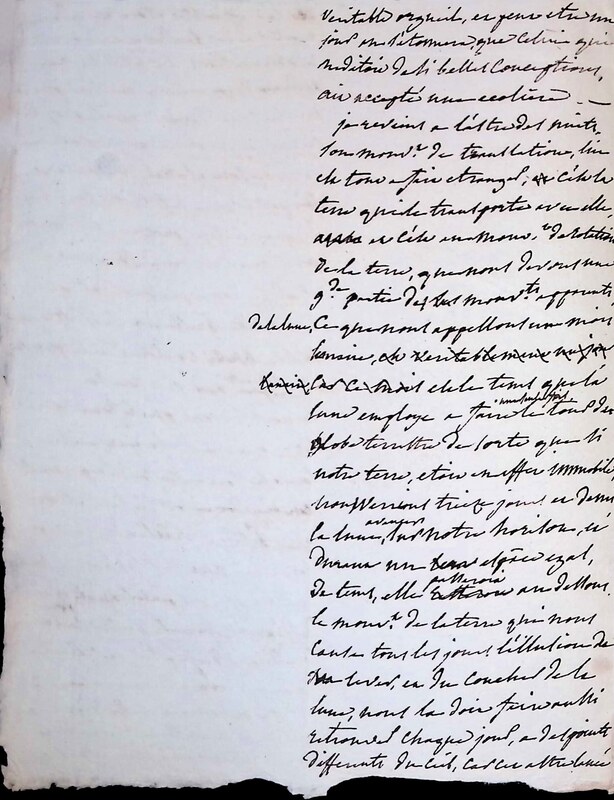 veritable orgueil, et peut etre un
jour on s'etonnera, que celui qui
meditoit de si belles conceptions,
ait accepté une ecoliere. —
je reviens a l'astre des nuits,
son mouv.t de translation, lui
est tout a fait etranger, et c'est la
terre qui le transporte avec elle
et c'est au mouv.t de rotation
de la terre, que nous devons une
g.de partie des mouv.ts apparents
de la lune, Ce que nous appellons un mois
lunaire, est veritablement
Car ce mois est le tems que la
lune employe a faire une seule fois le tour du
globe terrestre de sorte que si
notre terre, etoit en effet immobile,
nous verrions treize jours et demi
la lune, avancer sur notre horison, et
durant un espace egal,
de tems, elle passeroit au dessous.
le mouv.t de la terre qui nous
cause tous les jours l'illusion de
lever, et du coucher de la
lune, nous la doit faire aussi
retrouver chaque jour, a des points
differents du ciel, car cet astre